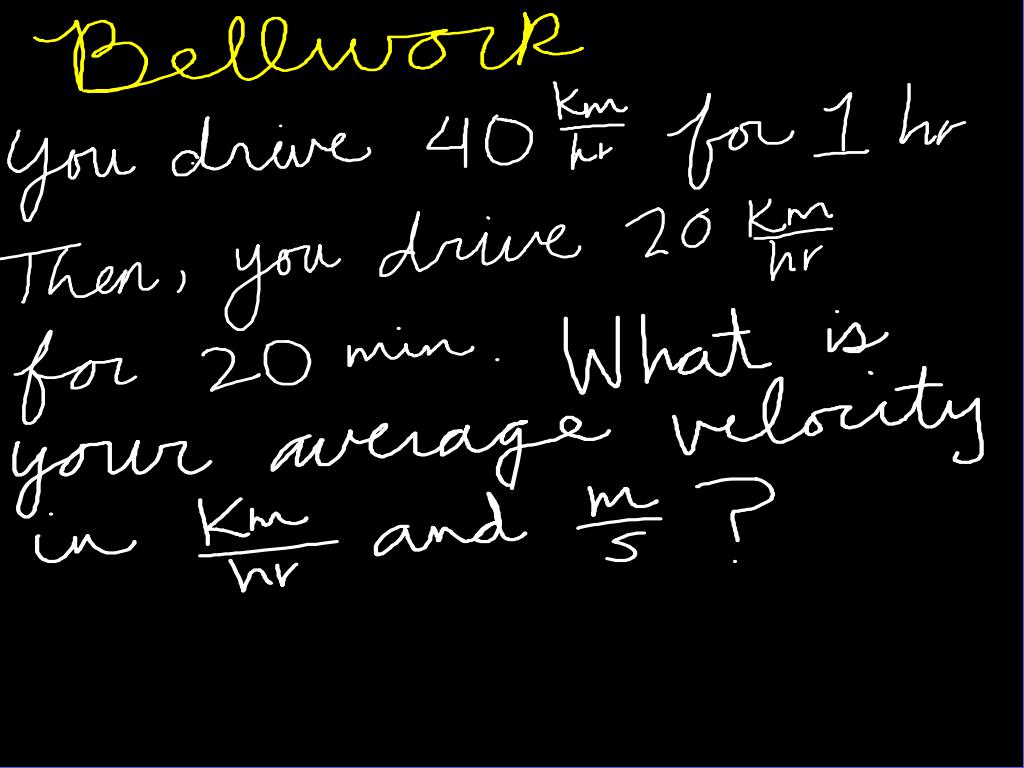 Bellwork
you drive 40 km/hr for 1 hr
Then, you drive 20 km/hr
for 20 min. What is
your average velocity
in km/hr and m/s ?